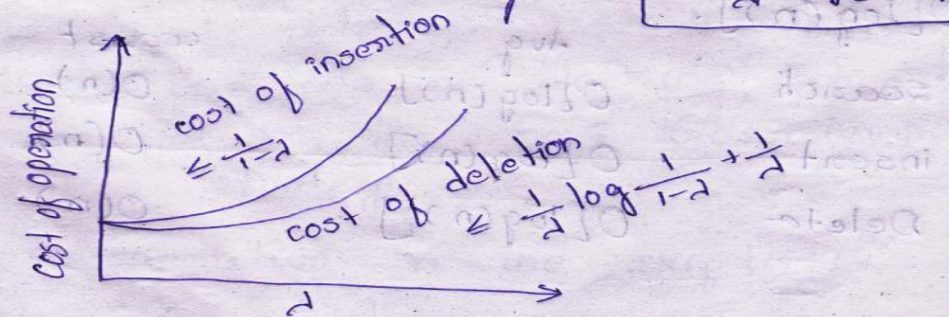 cost of operation
cost of insertion
≤ 1/(1-λ)
cost of deletion
≤ 1/λ log 1/(1-λ) + 1/λ
λ